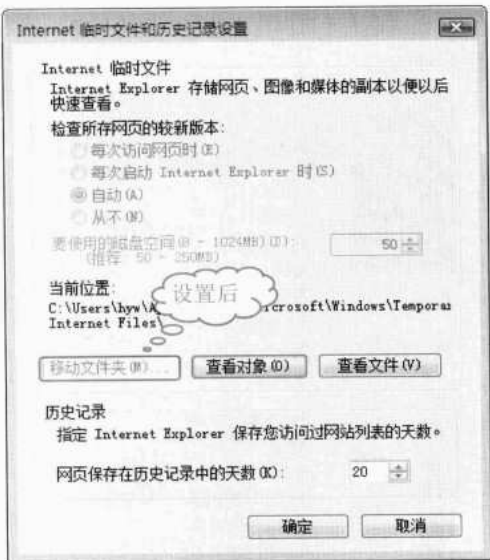 Internet 临时文件和历史记录设置
Internet 临时文件
Internet Explorer 存储网页、图像和媒体的副本以便以后
快速查看。
检查所存网页的较新版本:
每次访问网页时(E)
每次启动 Internet Explorer 时(S)
自动(A)
从不(N)
要使用的磁盘空间(8 - 1024MB)(D): 50
(推荐: 50 - 250MB)
当前位置:
设置后
C:\Users\hyw\A crosoft\Windows\Temporar
Internet Files\
移动文件夹(M)... 查看对象(O) 查看文件(V)
历史记录
指定 Internet Explorer 保存您访问过网站列表的天数。
网页保存在历史记录中的天数(K): 20
确定 取消